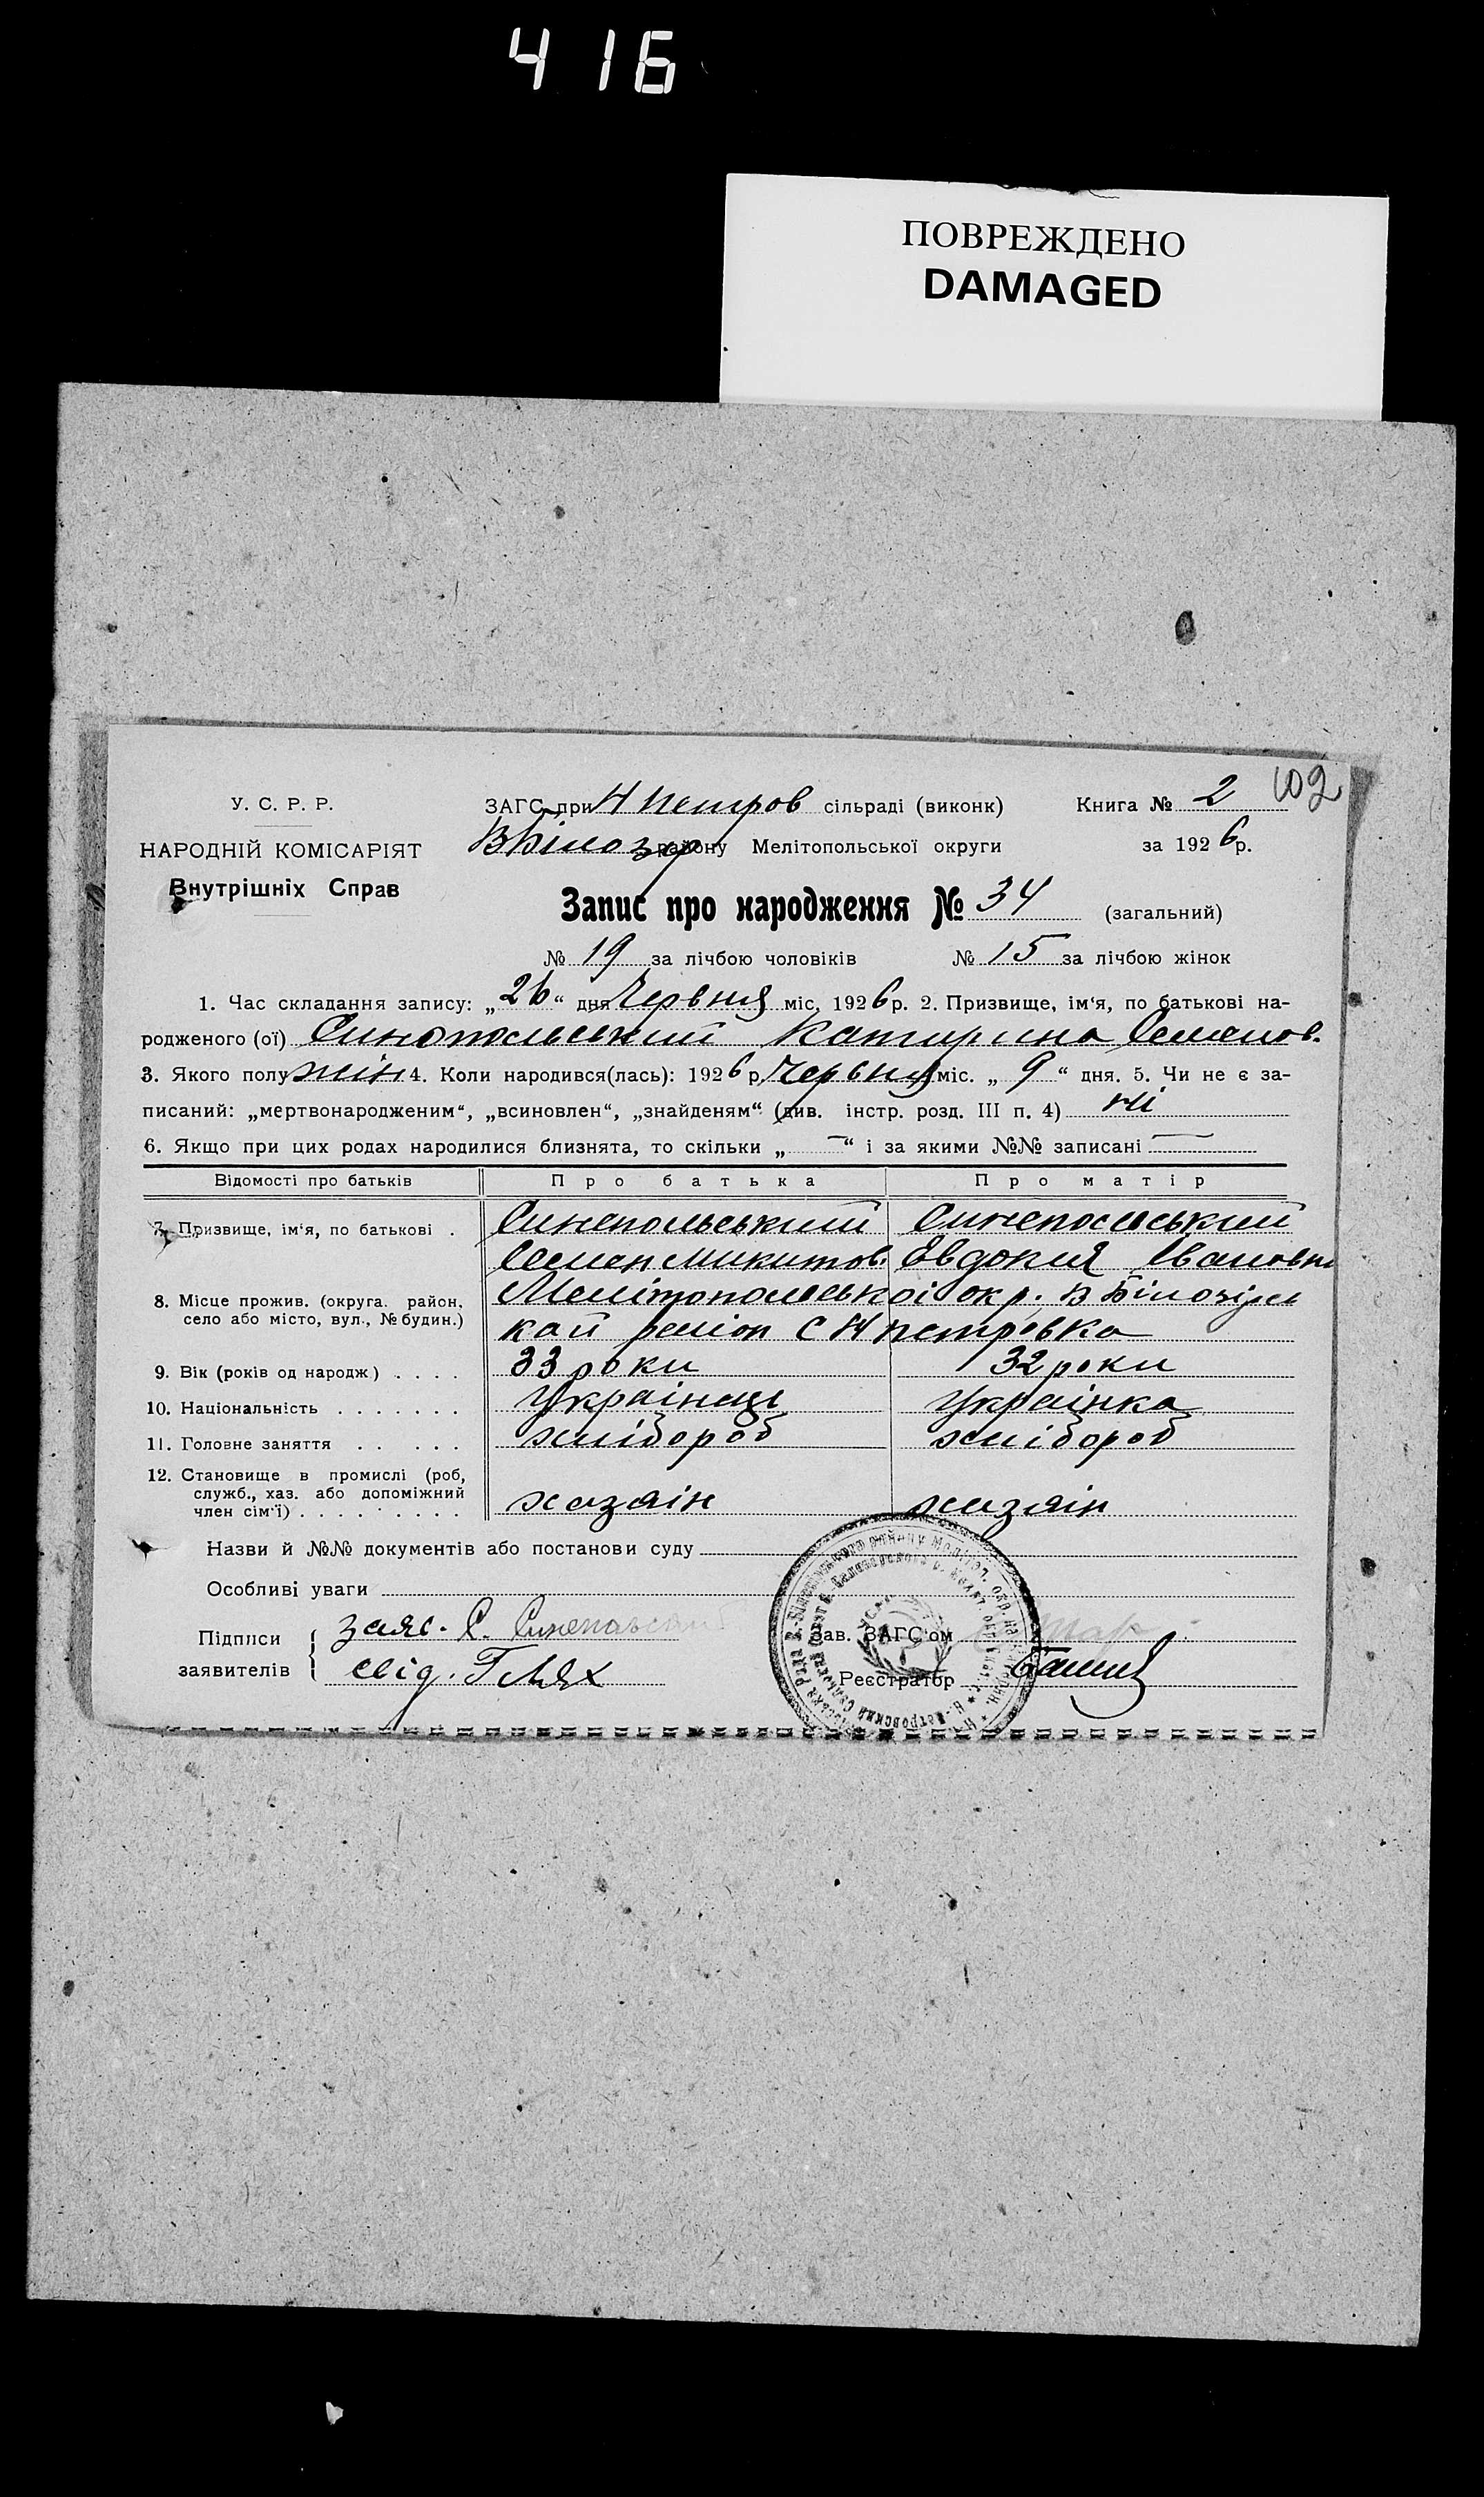 416
ПОВРЕЖДЕНО
DAMAGED
102
У. С. Р. Р.
НАРОДНІЙ КОМІСАРІЯТ
Внутрішніх Справ
ЗАГС при Н Петров сільраді (виконк) Книга № 2
ВБілозер району Мелітопольської округи за 1926р.
Запис про народження № 34 (загальний)
№ 19 за лічбою чоловіків № 15 за лічбою жінок
1. Час складання запису: „26“ дня Червня міс. 1926р. 2. Призвище, ім'я, по батькові на-
родженого (ої) Синопольський Катирина Семенов.
3. Якого полу жін 4. Коли народився(лась): 1926 р. Червня міс. „9“ дня. 5. Чи не є за-
писаний: „мертвонародженим“, „всиновлен“, „знайденям“ (див. інстр. розд. III п. 4) ні
6. Якщо при цих родах народилися близнята, то скільки „—“ і за якими №№ записані —
Відомості про батьків Про батька Про матір
7. Призвище, ім'я, по батькові . Синепольський Синепольський
Семен Микитов. Евдокия Івановна
8. Місце прожив. (округа. район, село або місто, вул., № будин.) Мелітопольської окр. В Білозірс
кай раіон С Н Петровка
9. Вік (років од народж.) . . . . 33 роки 32 роки
10. Національність . . . . . . . Українець Українка
11. Головне заняття . . . . . хлібороб хлібороб
12. Становище в промислі (роб,
служб., хаз. або допоміжний
член сім'ї) . . . . . . . . хазяін хазяін
Назви й №№ документів або постанови суду
Особливі уваги
Підписи заявителів { заяв. С. Синепольський
свід. Г Лях
Зав. ЗАГС'ом
Реєстратор